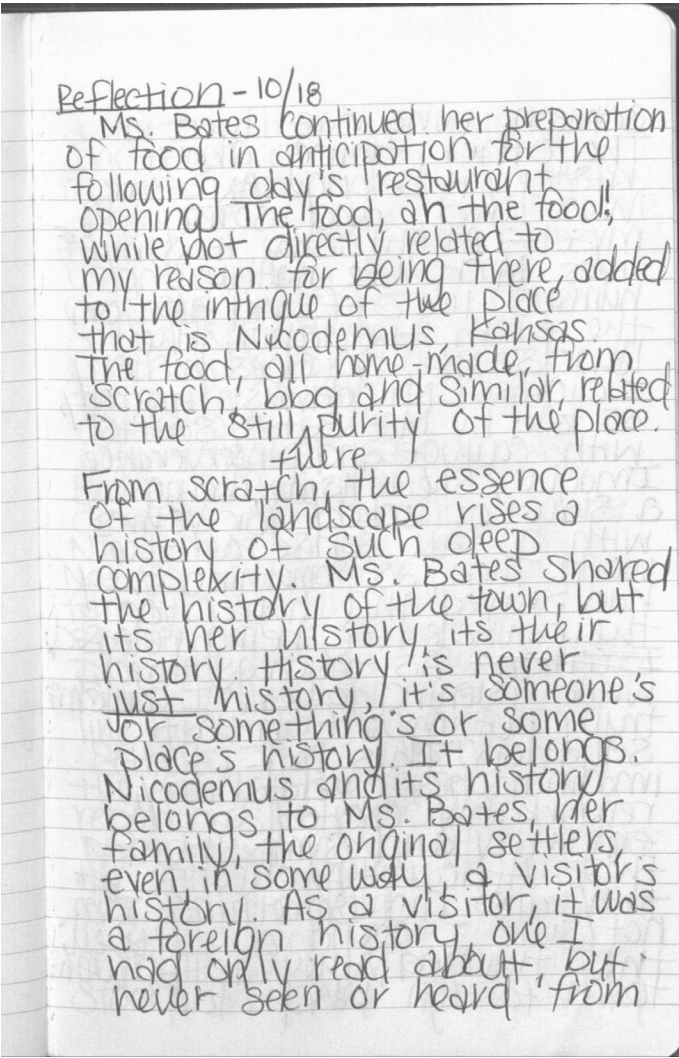 Reflection - 10/18
Ms. Bates continued her preparation
of food in anticipation for the
following day's restaurant
opening. The food, ah the food!,
while not directly related to
my reason for being there, added
to the intrigue of the place
that is Nicodemus, Kansas.
The food, all home-made, from
scratch, bbq and similar, related
to the still purity of the place.
there
From scratch, the essence
of the landscape rises a
history of such deep
complexity. Ms. Bates shared
the history of the town, but
its her history, its their
history. History is never
just history, it's someone's
or something's or some
place's history. It belongs.
Nicodemus and its history
belongs to Ms. Bates, her
family, the original settlers,
even in some way, a visitor's
history. As a visitor, it was
a foreign history, one I
had only read about, but
never seen or heard from